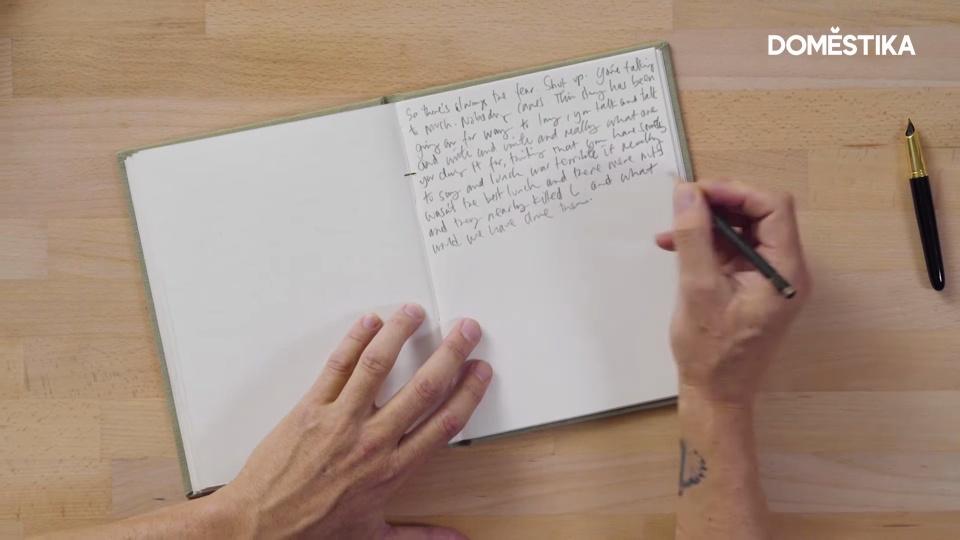 DOMĚSTIKA
So there's always the fear Shut up. You're talking
to much. Nobody cares. This thing has been
going on for way to long, you talk and talk
and write and write and really what are
you doing it for, thinking that you have
to say and lunch was terrible it really
wasn't the best lunch and there were nuts
and they nearly killed L and what
would we have done then.